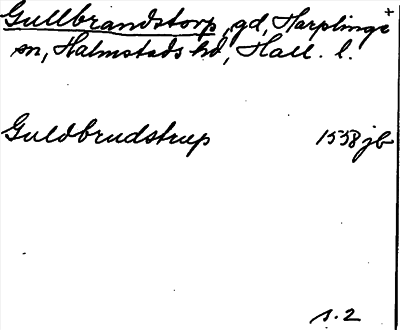 Gullbrandstorp, gd, Harplinge +
sn, Halmstads hd, Hall. l.
Guldbrudstrup 1558 jb
s. 2